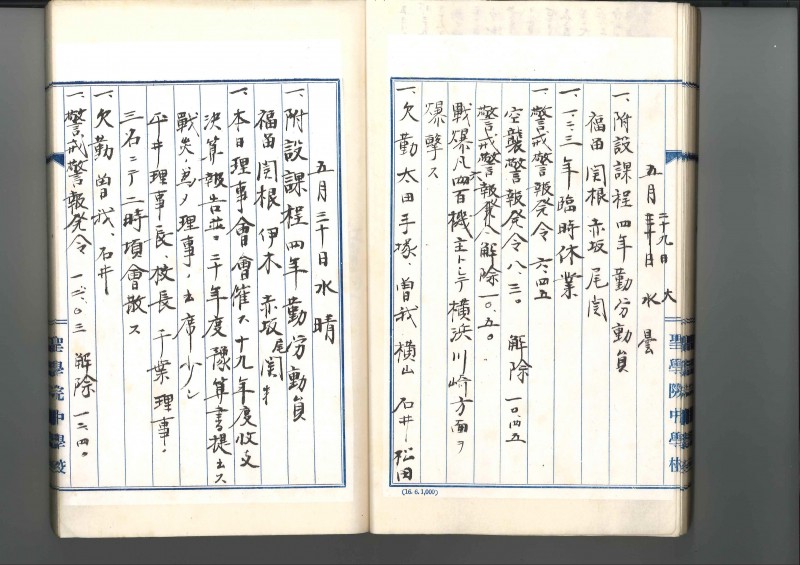 五月三十日 水 曇
二十九日 火
一、附設課程四年勤労動員
福田 関根 赤坂 尾関
一、一、二、三年臨時休業
一、警戒警報発令 六、四五
空襲警報発令 八、三〇 解除 一〇、四五
警戒警報 解除 一〇、五〇
戦爆凡四百機主トシテ横浜川崎方面ヲ
爆撃ス
一、欠勤 太田 手塚、曽我 横山 石井 松田
聖學院中學校
(16. 6. 1,000)
五月三十日 水 晴
一、附設課程四年勤労動員
福田 関根 伊木 赤坂 尾関
一、本日理事會會催ス 十九年度收支
決算報告並ニ二十年度豫算書提出ス
戦災ノ為 理事ノ出席少シ
平井理事長、校長 千葉理事、
三名ニテ二時頃會散ス
一、欠勤 曽我 石井
一、警戒警報発令 一二、〇三 解除 一二、四〇
聖學院中學校